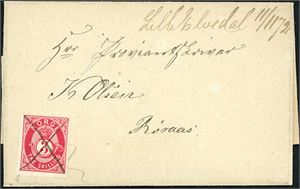 Lille Elvedal 11/11 72
Hr Proviantskriver
K Olsen
Röraas
NORGE
3